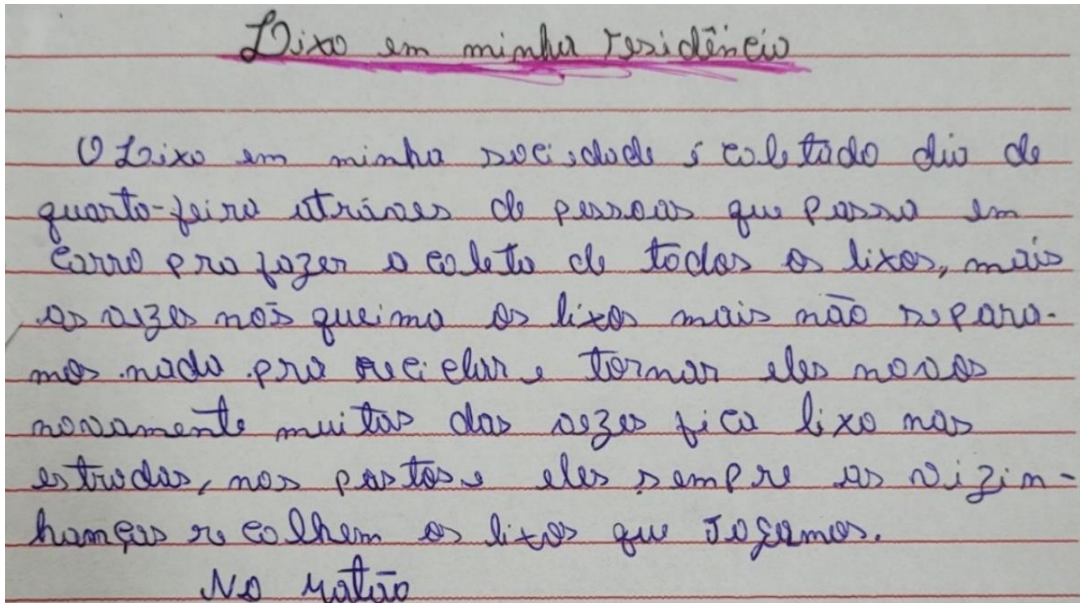 Lixo em minha residência
O Lixo em minha sociedade é coletado dia de
quarta-feira atráves de pessoas que passa em
carro pra fazer a coleta de todos os lixos, mais
as vezes nós queima os lixos mais não separa-
mos nada pra reciclar e tornar eles novos
novamente muitas das vezes fica lixo nas
estradas, nos pastos e eles sempre as vizin-
hanças recolhem os lixos que Jogamos.
No